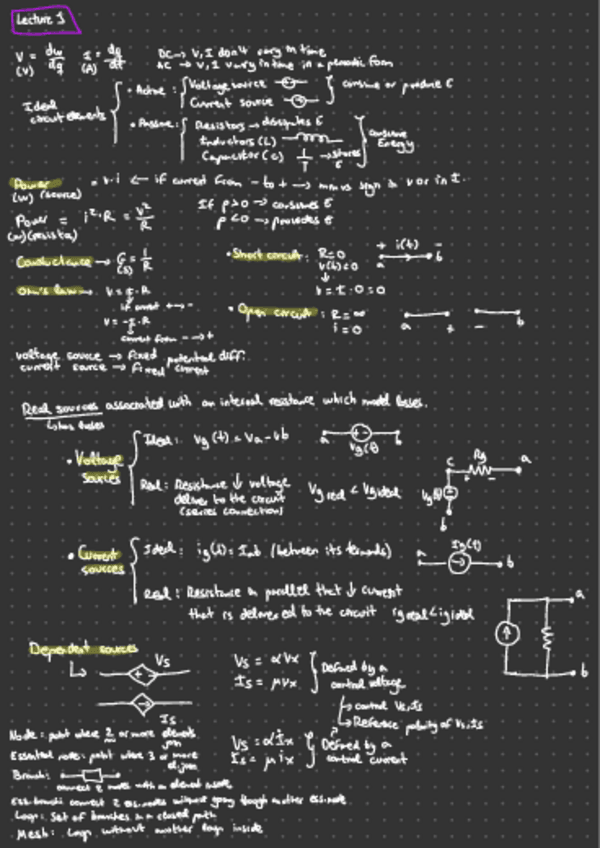 Lecture 1
V = dw/dq I = dq/dt DC → V, I don't vary in time
(V) (A) AC → V, I vary in time in a periodic form
Ideal circuit elements
• Active: Voltage source
Current source
consume or produce E
• Passive: Resistors → dissipates E
Inductors (L)
Capacitor (C) → stores E
consume Energy
Power = v·i ← if current from - to + → minus sign in v or in I.
(W) (source)
If p>0 → consumes E
p<0 → provides E
Power = i²·R = V²/R
(W) (resistor)
Conductance → G = 1/R
(S)
• Short circuit: R=0
V(t)=0
↓
V = I·0=0
+ i(t) -
a b
Ohm's law → V = I·R
if current + → -
V = -I·R
current from - → +
• Open circuit: R=∞
i=0
a + - b
voltage source → fixed potential diff.
current source → fixed current
Real sources associated with an internal resistance which model losses.
↳ has losses
• Voltage sources
Ideal: Vg(t) = Va-Vb
a b
Vg(t)
Real: Resistance ↓ voltage
deliver to the circuit
(series connection)
Vg real < Vg ideal
c Rg a
+ -
Vg(t)
b
• Current sources
Ideal: ig(t) = Iab (between its terminals)
Ig(t)
a b
Real: Resistance in parallel that ↓ current
that is delivered to the circuit ig real < ig ideal
a
b
Dependent sources
Vs
Is
Vs = αVx
Is = μVx
Defined by a control voltage
↳ control Vs, Is
↳ Reference polarity of Vs, Is
Vs = αIx
Is = μix
Defined by a control current
Node: point where 2 or more elements join
Essential node: point where 3 or more el. join
Branch:
connect 2 nodes with an element inside
Ess. branch: connect 2 ess. nodes without going though another ess. node
Loop: Set of branches in a closed path
Mesh: Loop without another loop inside